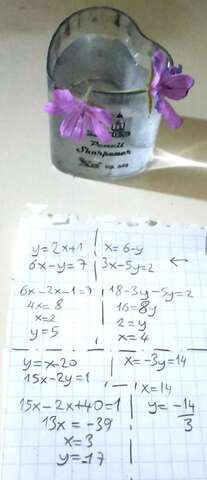 Pencil
Sharpener
y=2x+1
6x-y=7
6x-2x-1=7
4x=8
x=2
y=5
x=6-y
3x-5y=2
←
18-3y-5y=2
16=8y
2=y
x=4
y=x-20
15x-2y=1
15x-2x+40=1
13x=-39
x=3
y=-17
x=-3y=14
x=14
y=-14/3